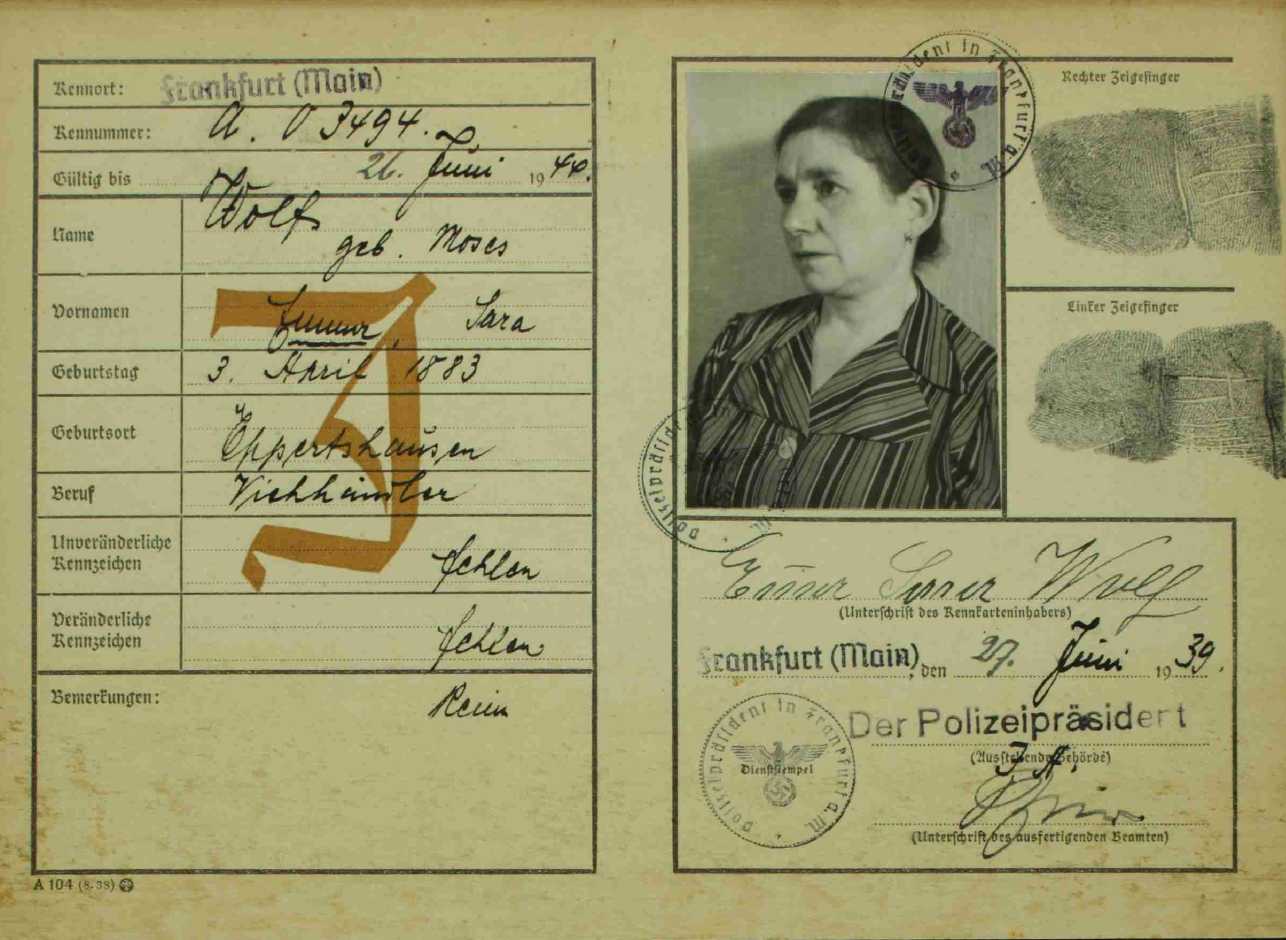 Kennort: Frankfurt (Main)
Kennummer: A. 03494.
Gültig bis 26. Juni 1944.
Name Wolf
geb. Moses
Vornamen Emma, Sara
Geburtstag 3. April 1883
Geburtsort Eppertshausen
Beruf Viehhändler
Unveränderliche
Kennzeichen fehlen
Veränderliche
Kennzeichen fehlen
Bemerkungen: Keine
J
A 104 (8. 38)
Polizeipräsident in Frankfurt a. M.
Rechter Zeigefinger
Linker Zeigefinger
Polizeipräsident
Emma Sara Wolf
(Unterschrift des Kennkarteninhabers)
Frankfurt (Main), den 27. Juni 1939.
Der Polizeipräsident
(Ausstellende Behörde)
J. A.
Polizeipräsident in Frankfurt a. M.
Dienststempel
(Unterschrift des ausfertigenden Beamten)